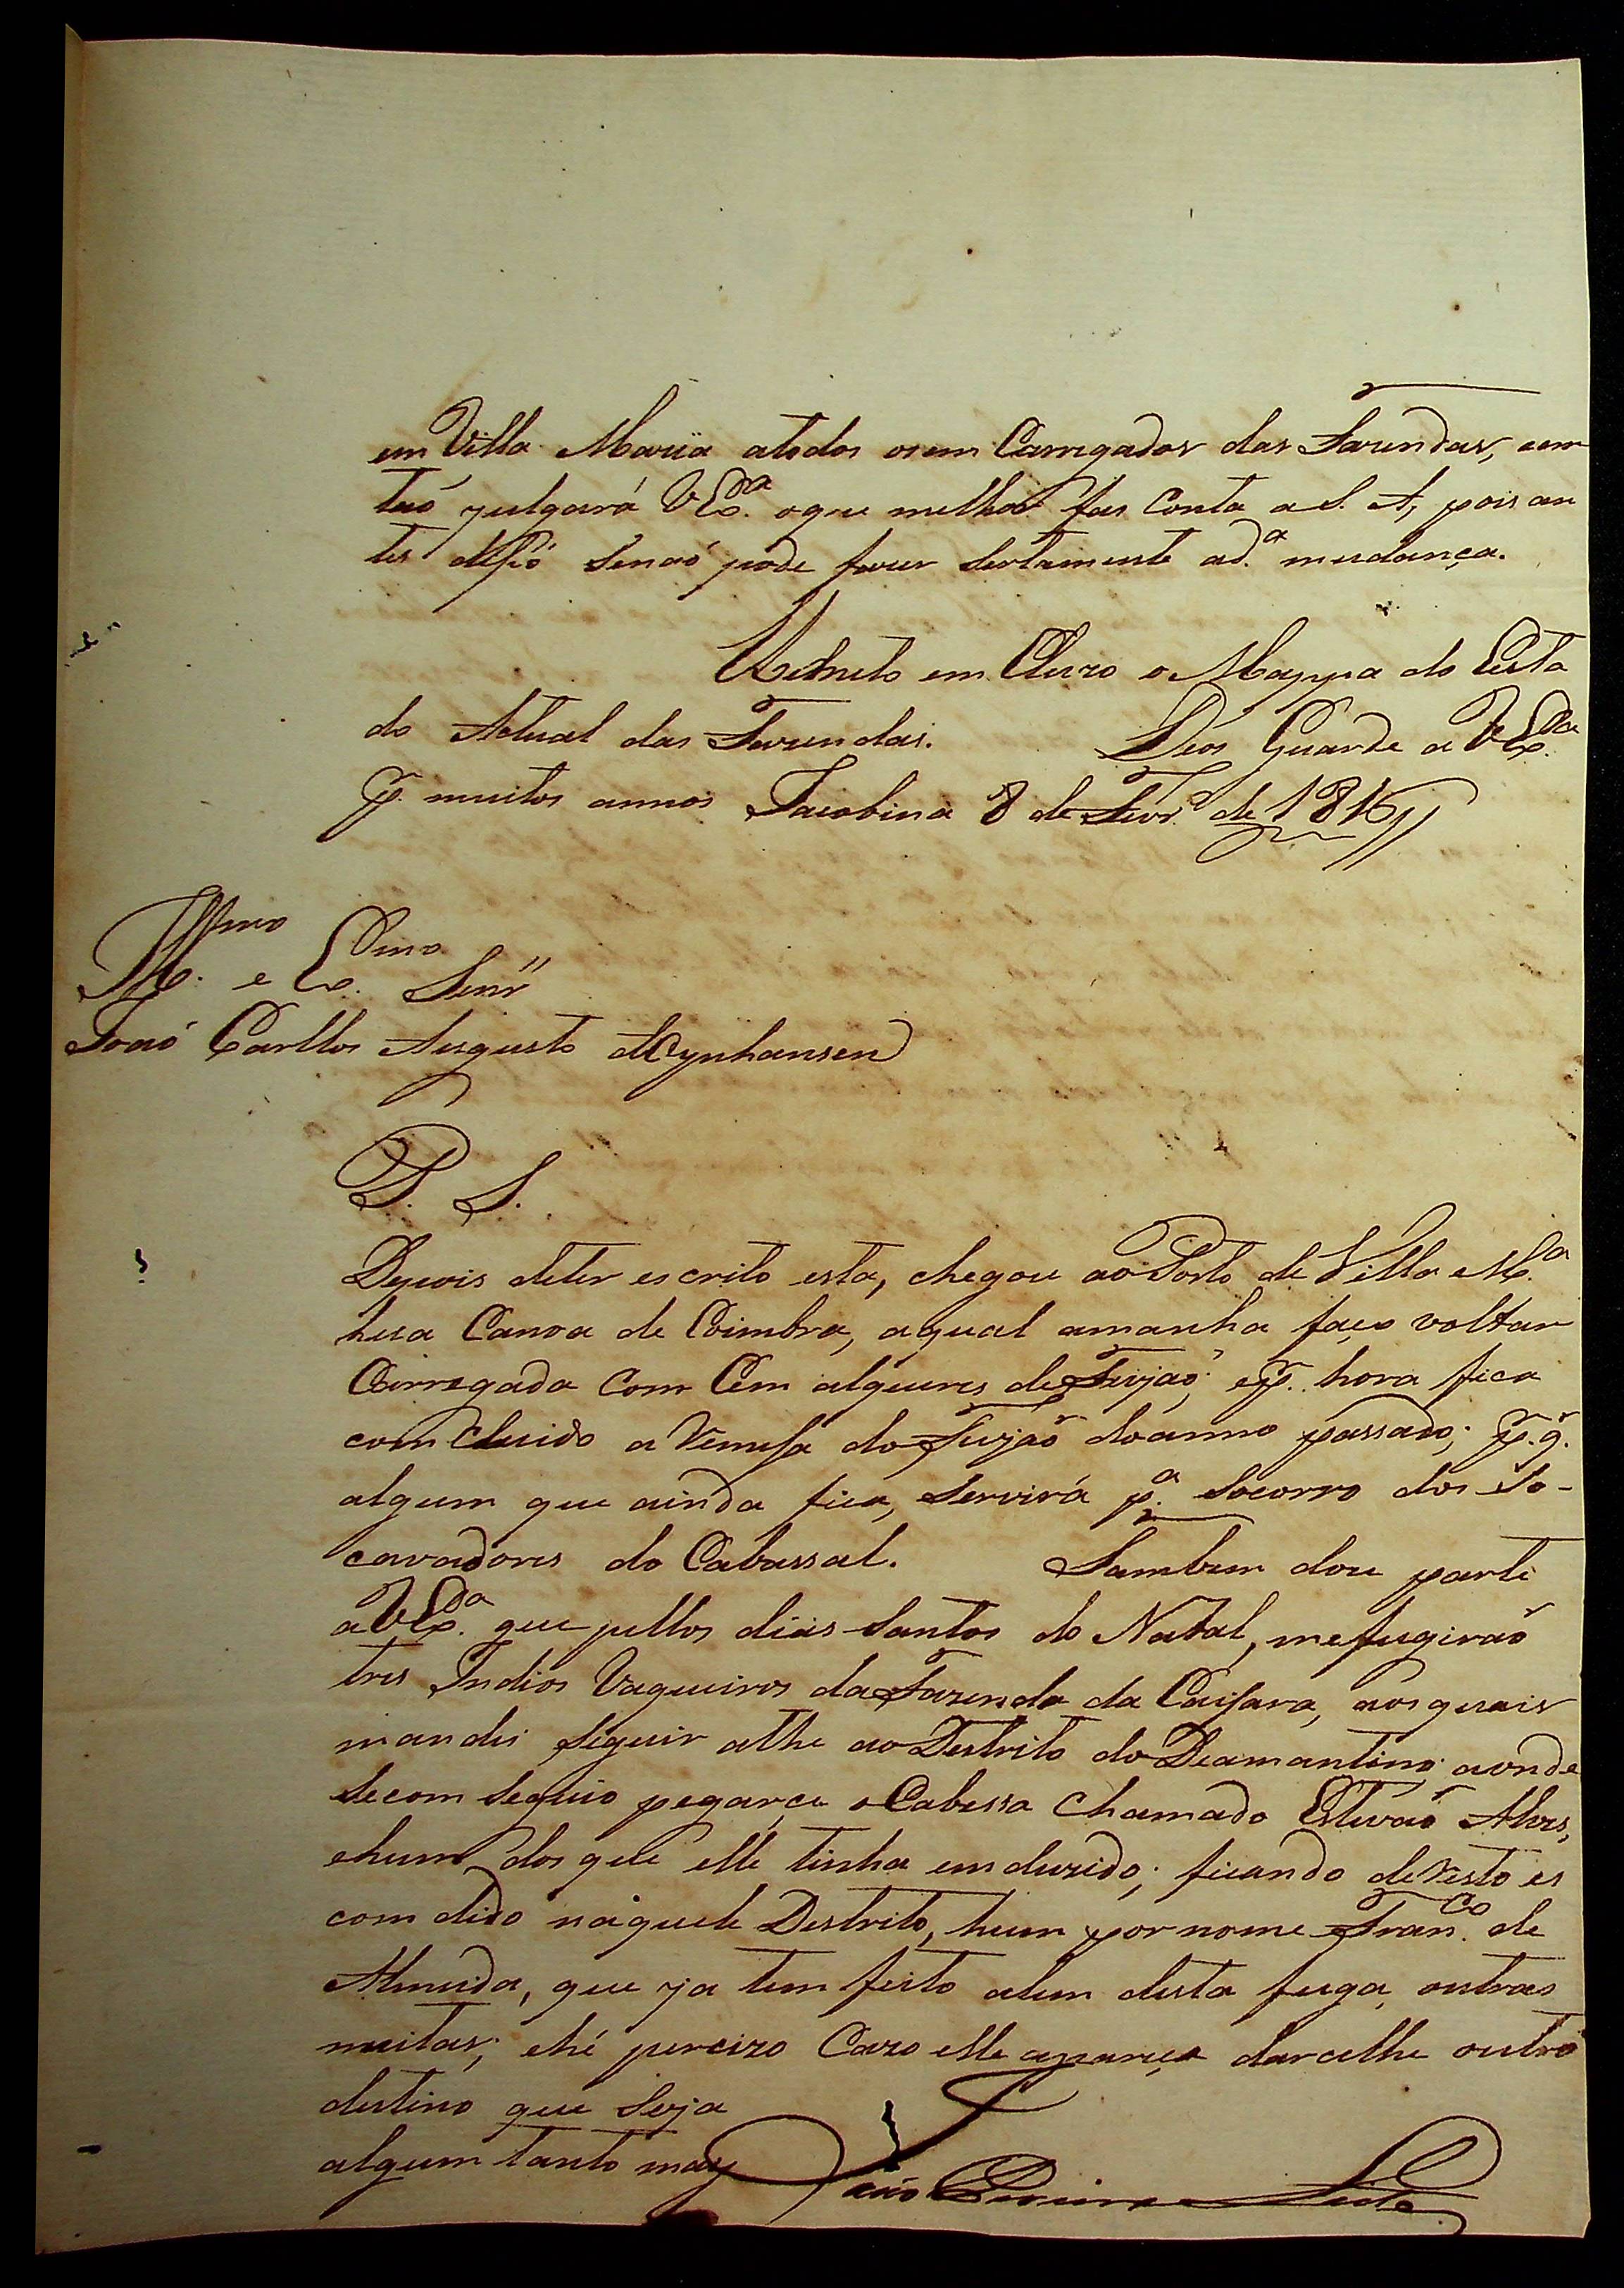 em Villa Maria atodos os em Carregados das Fazendas, e em
taó julgará VEx.ª o que melhor fas Conta a S. A, pois an
tes disso senaó pode fazer sertamente a d.ª mudança.
Remeto em Cluzo o Mappa do Esta
do Actual das Fazendas. Deos Guarde a VEx.ª
p.r muitos annos Jacobina 8 de Fevr.º de 1816
Ill.mo e Ex.mo Senr
Joaó Carllos Augusto d'Oeynhausen
P. S.
Depois deter escrito esta, chegou ao Porto de Villa M.ª
hua Canoa de Coimbra, aqual amanha faço voltar
Carregada Com Cem alqueires de Feijaó; e p.r hora fica
com Cluido a Remessa do Feijaó do anno passado; p.r q̃.
algum que ainda fica, servirá p.ª Socorro dos So-
cavadores do Cabassal. Tambem dou parte
a VEx.ª que pellos dias Santos do Natal, me fugiraó
tres Indios Vaqueiros da Fazenda da Caisara, aos quais
mandei seguir athe ao Destrito do Deamantino aonde
se com seguio pegarce o Cabessa Chamado Estevaó Alves,
e hum dos que elle tinha em duzido; ficando de resto es
com dido náquele Destrito, hum por nome Fran.co de
Almeida, que ja tem feito alem desta fuga, outras
muitas; e hé percizo Cazo elle apareça darcelhe outro
destino que Seja
algum tanto may
Joáo Pereira Leite